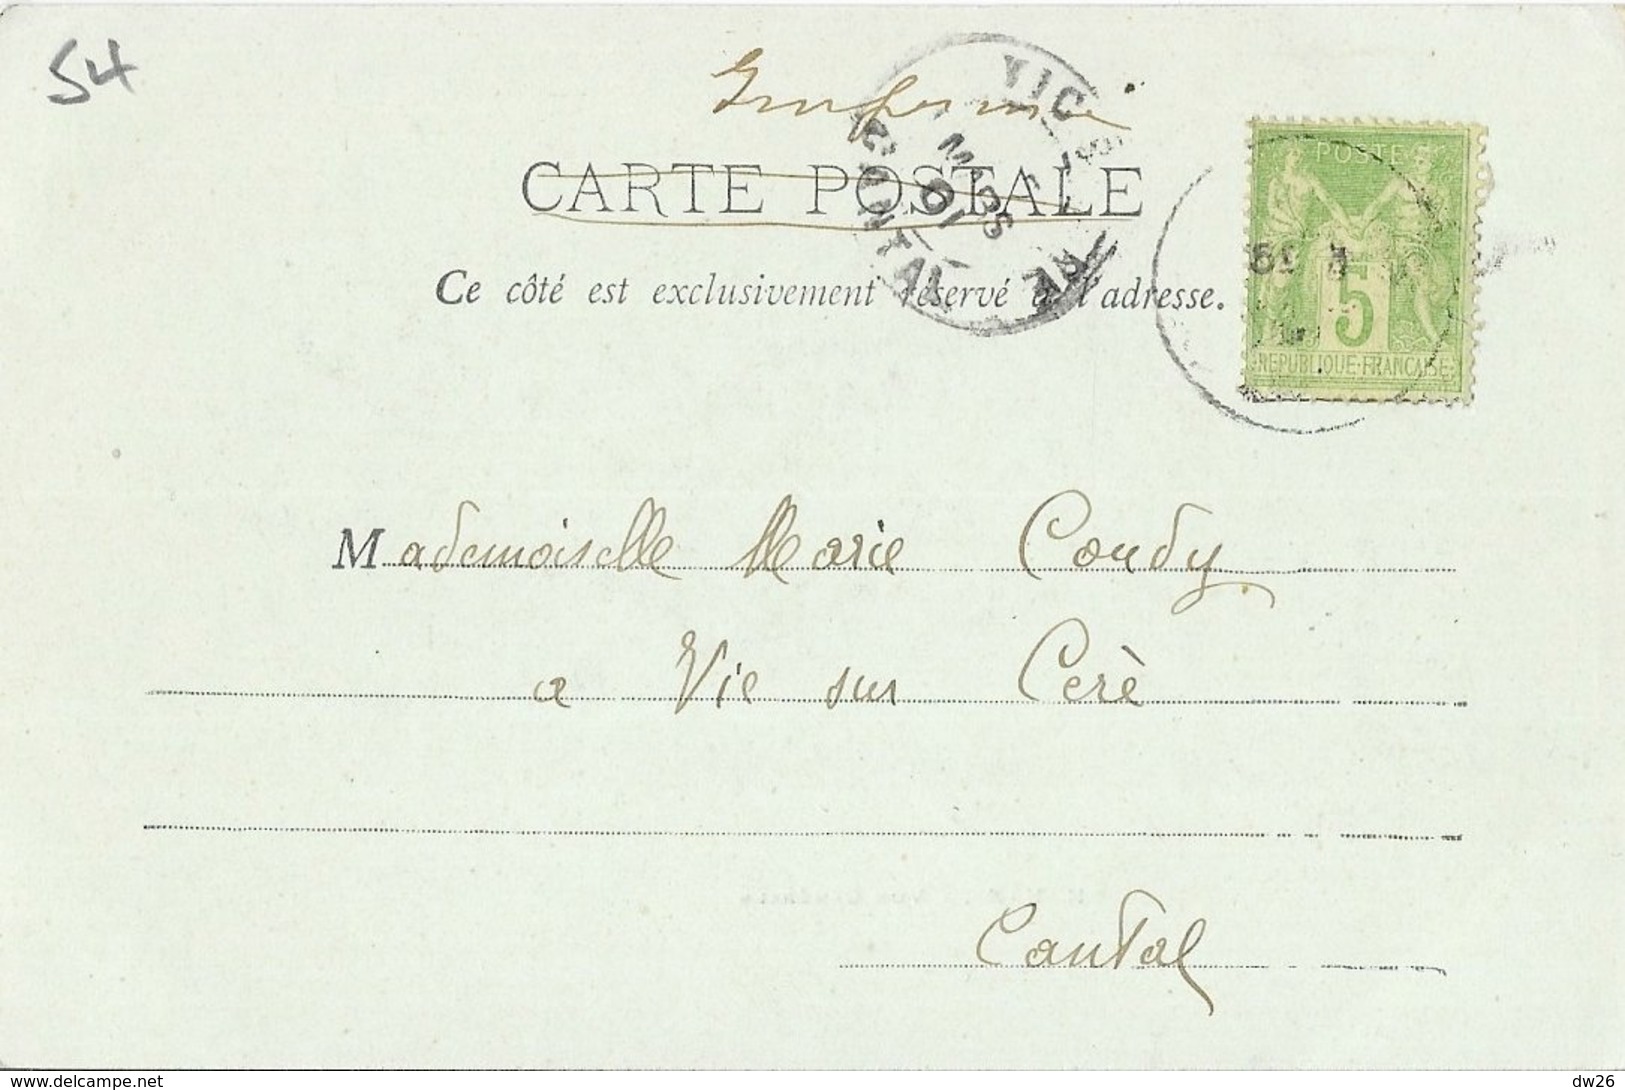 54
Imprimé
CARTE POSTALE
Ce côté est exclusivement réservé à l'adresse.
VIC
CANTAL
MARS
01
POSTE
5
REPUBLIQUE·FRANCAISE
Mademoiselle Marie Coudy
a Vic sur Cerè
Cantal
www.delcampe.net
dw26